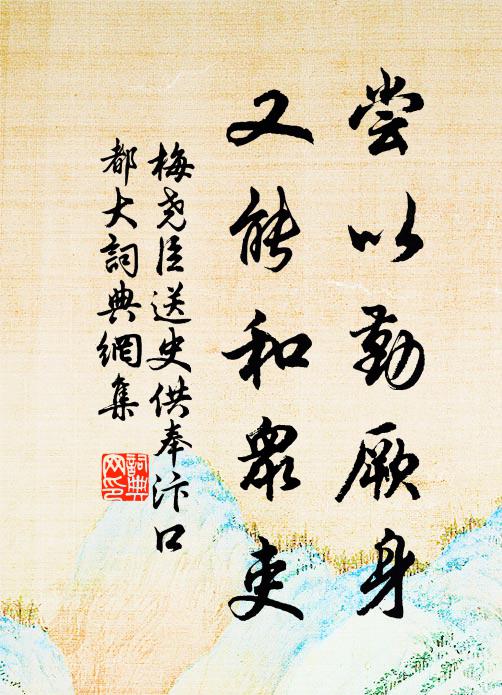 尝以勤厥身
又能和众吏
梅尧臣送史供奉汴口
都大词典網集
詞典
网印